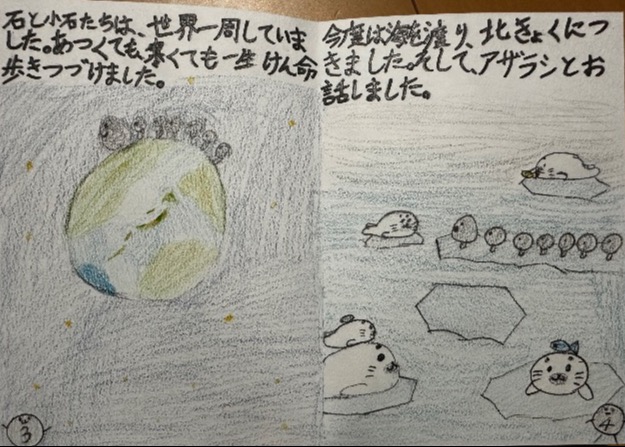 石と小石たちは、世界一周していま
した。あつくても、寒くても一生けん命
歩きつづけました。
3
今度は海を渡り、北きょくにつ
きました。そして、アザラシとお
話しました。
4